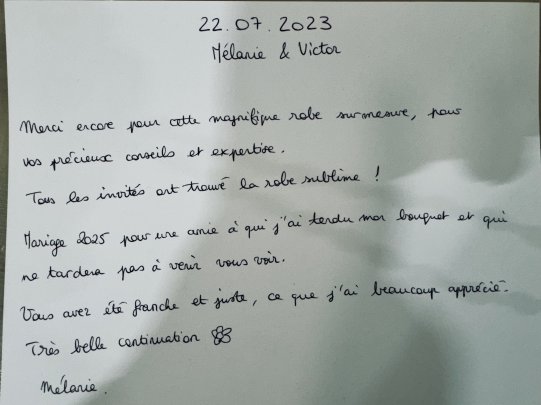 22.07.2023
Mélanie & Victor
Merci encore pour cette magnifique robe sur-mesure, pour
vos précieux conseils et expertise.
Tous les invités ont trouvé la robe sublime !
Mariage 2025 pour une amie à qui j'ai tendu mon bouquet et qui
ne tardera pas à venir vous voir.
Vous avez été franche et juste, ce que j'ai beaucoup apprécié.
Très belle continuation
Mélanie.